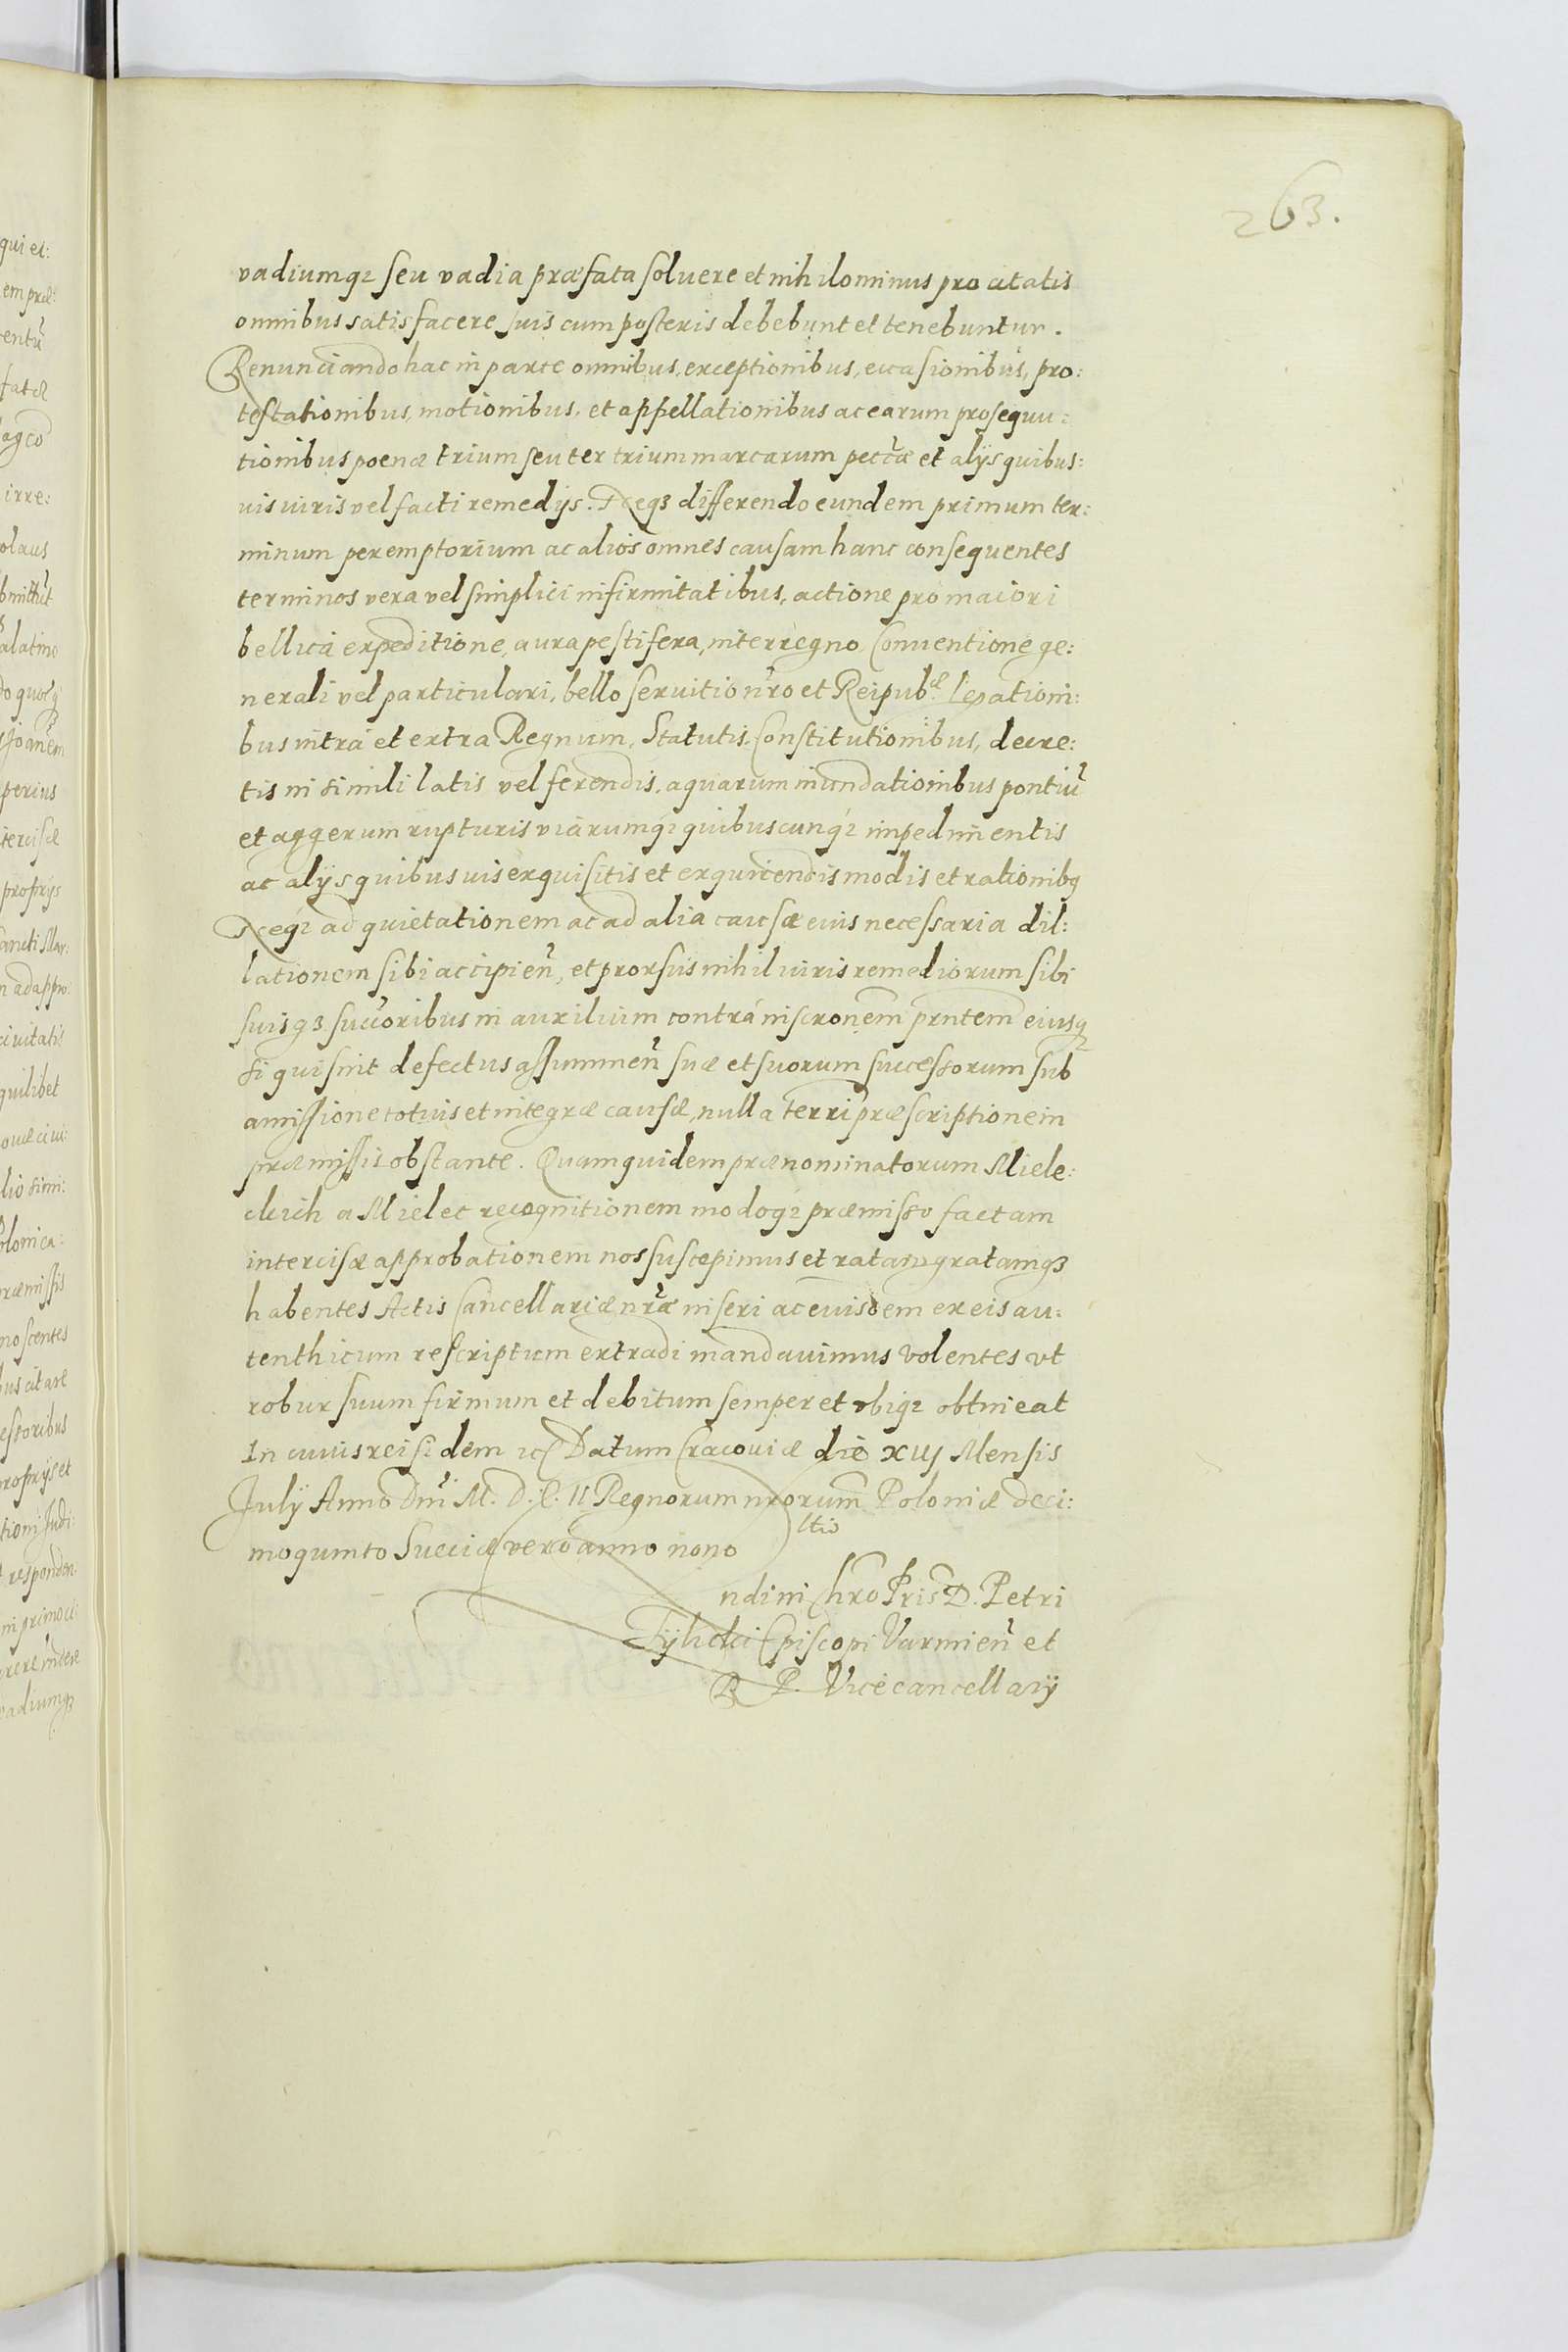 263.
vadiumq₃ seu vadia præfata soluere et nihilominus pro citatis
omnibus satisfacere suis cum posteris debebunt et tenebuntur.
Renunciando hac in parte omnibus, exceptionibus, euasionibus, pro:
testationibus, motionibus, et appellationibus ac earum prosequu:
tionibus poenæ trium seu ter trium marcarum peccæ et alijs quibus:
uis iuris vel facti remedijs. Neq₃ differendo eundem primum ter:
minum peremptorium ac alios omnes causam hanc consequentes
terminos vera vel simplici infirmitatibus, actione pro maiori
bellica expeditione, aura pestifera, interregno Conuentione ge:
nerali vel particulari, bello seruitio nr̃o et Reipubᵃᵉ. legationi:
bus intra et extra Regnum, Statutis, Constitutionibus, decre:
tis in simili latis vel ferendis, aquarum inundationibus pontiũ
et aggerum rupturis viarumq₃ quibuscunq₃ impedimentis
ac alijs quibusuis exquisitis et exquirendis modis et rationibq
Neq₃ ad quietationem ac ad alia causæ euis necessaria dil:
lationem sibi accipień, et prorsus nihil iuris remediorum sibi
suisq₃ succoribus in auxilium contra inscronẽm prntẽm eiusq
si qui sint defectus assummeñ suæ et suorum successorum sub
amissione totius et integræ causæ, nulla terri præscriptione in
præmissis obstante. Quam quidem prænominatorum Miele:
ckich a Mielec recognitionem modoq₃ præmisso factam
intercisæ approbationem nos suscepimus et ratam gratamq₃
habentes Actis Cancellariæ nr̃æ inseri ac euisdem ex eis au:
tenthicum rescriptum extradi mandauimus volentes vt
robur suum firmum et debitum semper et vbiq₃ obtineat
In cuius rei fidem etc Datum Cracouiæ die xiij Mensis
July Anno Dnĩ M. D. C. II Regnorum nrorum Poloniæ deci:
moquinto Sueciæ vero anno nono
ltis
ndi in Chro Pris D. Petri
Tylicki Episcopi Varmień et
R P. Vicecancellarij
qui et:
em præ:
entũ
fatæ
ageo
irre:
olaus
alatino
perius
tercisæ
proprijs
n ad appro:
ciuitatis
quilibet
lio simi:
olonica:
ræmissis
noscentes
bus citare
essoribus
roprijs et
adiumq₃